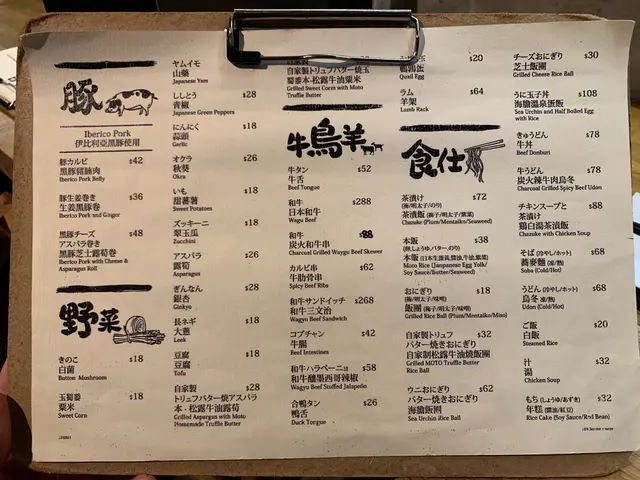 豚
Iberico Pork
伊比利亞黒豚使用
豚カルビ $42
黒豚豬腩肉
Iberico Pork Belly
豚生姜巻き $36
生姜黒豚卷
Iberico Pork and Ginger
黒豚チーズ $48
アスパラ巻き
黒豚芝士露荀卷
Iberico Pork with Cheese &
Asparagus Roll
野菜
きのこ $18
白菌
Button Mushroom
玉蜀黍 $18
粟米
Sweet Corn
ヤムイモ
山藥
Japanese Yam
ししとう $28
青椒
Japanese Green Peppers
にんにく $18
蒜頭
Garlic
オクラ $26
秋葵
Okra
いも $18
甜蕃薯
Sweet Potatoes
ズッキーニ $18
翠玉瓜
Zucchini
アスパラ $26
露荀
Asparagus
ぎんなん $28
銀杏
Ginkgo
長ネギ $18
大蔥
Leek
豆腐 $18
豆腐
Tofu
自家製 $28
トリュフバター焼アスパラ
本・松露牛油露荀
Grilled Asparagus with Moto
Homemade Truffle Butter
自家製トリュフバター焼玉
蜀黍本・松露牛油粟米
Grilled Sweet Corn with Moto
Truffle Butter
牛鳥羊
牛タン $52
牛舌
Beef Tongue
和牛 $288
日本和牛
Wagu Beef
和牛 $88
炭火和牛串
Charcoal Grilled Wagyu Beef Skewer
カルビ串 $62
牛肋骨串
Spicy Beef Ribs
和牛サンドイッチ $268
和牛三文治
Wagyu Beef Sandwich
コプチャン $42
牛腸
Beef Intestines
和牛ハラペーニョ $58
和牛釀墨西哥辣椒
Wagyu Beef Stuffed Jalapeño
合鴨タン $26
鴨舌
Duck Tongue
$20
鵪鶉蛋
Quail Egg
ラム $64
羊架
Lamb Rack
食仕
茶漬け $72
(梅/明太子/のり)
茶漬飯 (梅子/明太子/紫菜)
Chazuke (Plum/Mentaiko/Seaweed)
本飯 $38
本飯 (日本生蛋黃/醬油/牛油/紫菜)
Moto Rice (Janpanese Egg Yolk/
Soy Sauce/Butter/Seaweed)
おにぎり $18
(梅/明太子/味噌)
飯團 (梅子/明太子/味噌)
Grilled Rice Ball (Plum/Mentaiko/Miso)
自家製トリュフ $32
バター焼きおにぎり
自家制松露牛油燒飯團
Grilled MOTO Truffle Butter
Rice Ball
ウニおにぎり $62
バター焼きおにぎり
海膽飯團
Sea Urchin Rice Ball
チーズおにぎり $30
芝士飯團
Grilled Cheese Rice Ball
うに玉子丼 $108
海膽溫泉蛋飯
Sea Urchin and Half Boiled Egg
with Rice
きゅうどん $78
牛丼
Beef Donburi
牛うどん $78
炭火辣牛肉烏冬
Charcoal Grilled Spicy Beef Udon
チキンスープと $88
茶漬け
鶏白湯茶漬飯
Chazuke with Chicken Soup
そば (冷やし/ホット) $68
蕎麥麵 (凍/熱)
Soba (Cold/Hot)
うどん (冷やし/ホット) $68
烏冬 (凍/熱)
Udon (Cold/Hot)
ご飯 $20
白飯
Steamed Rice
汁 $32
湯
Chicken Soup
もち (しょうゆ/あずき) $32
年糕 (醬油/紅豆)
Rice Cake (Soy Sauce/Red Bean)